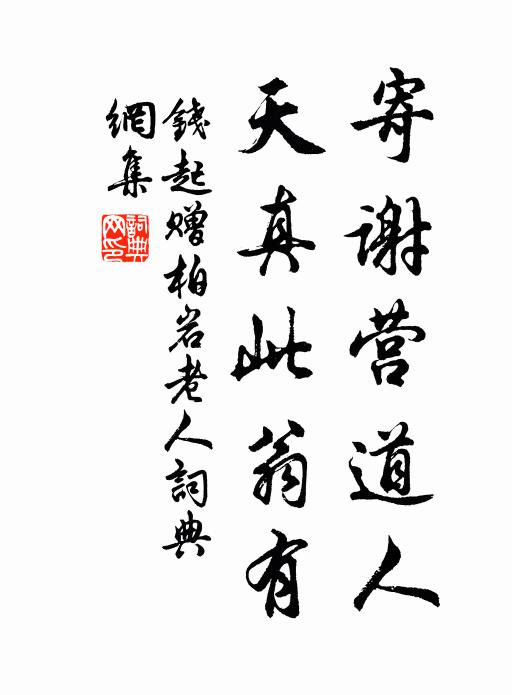 寄谢营道人
天真此翁有
錢起赠柏岩老人詞典
網集
詞典網印